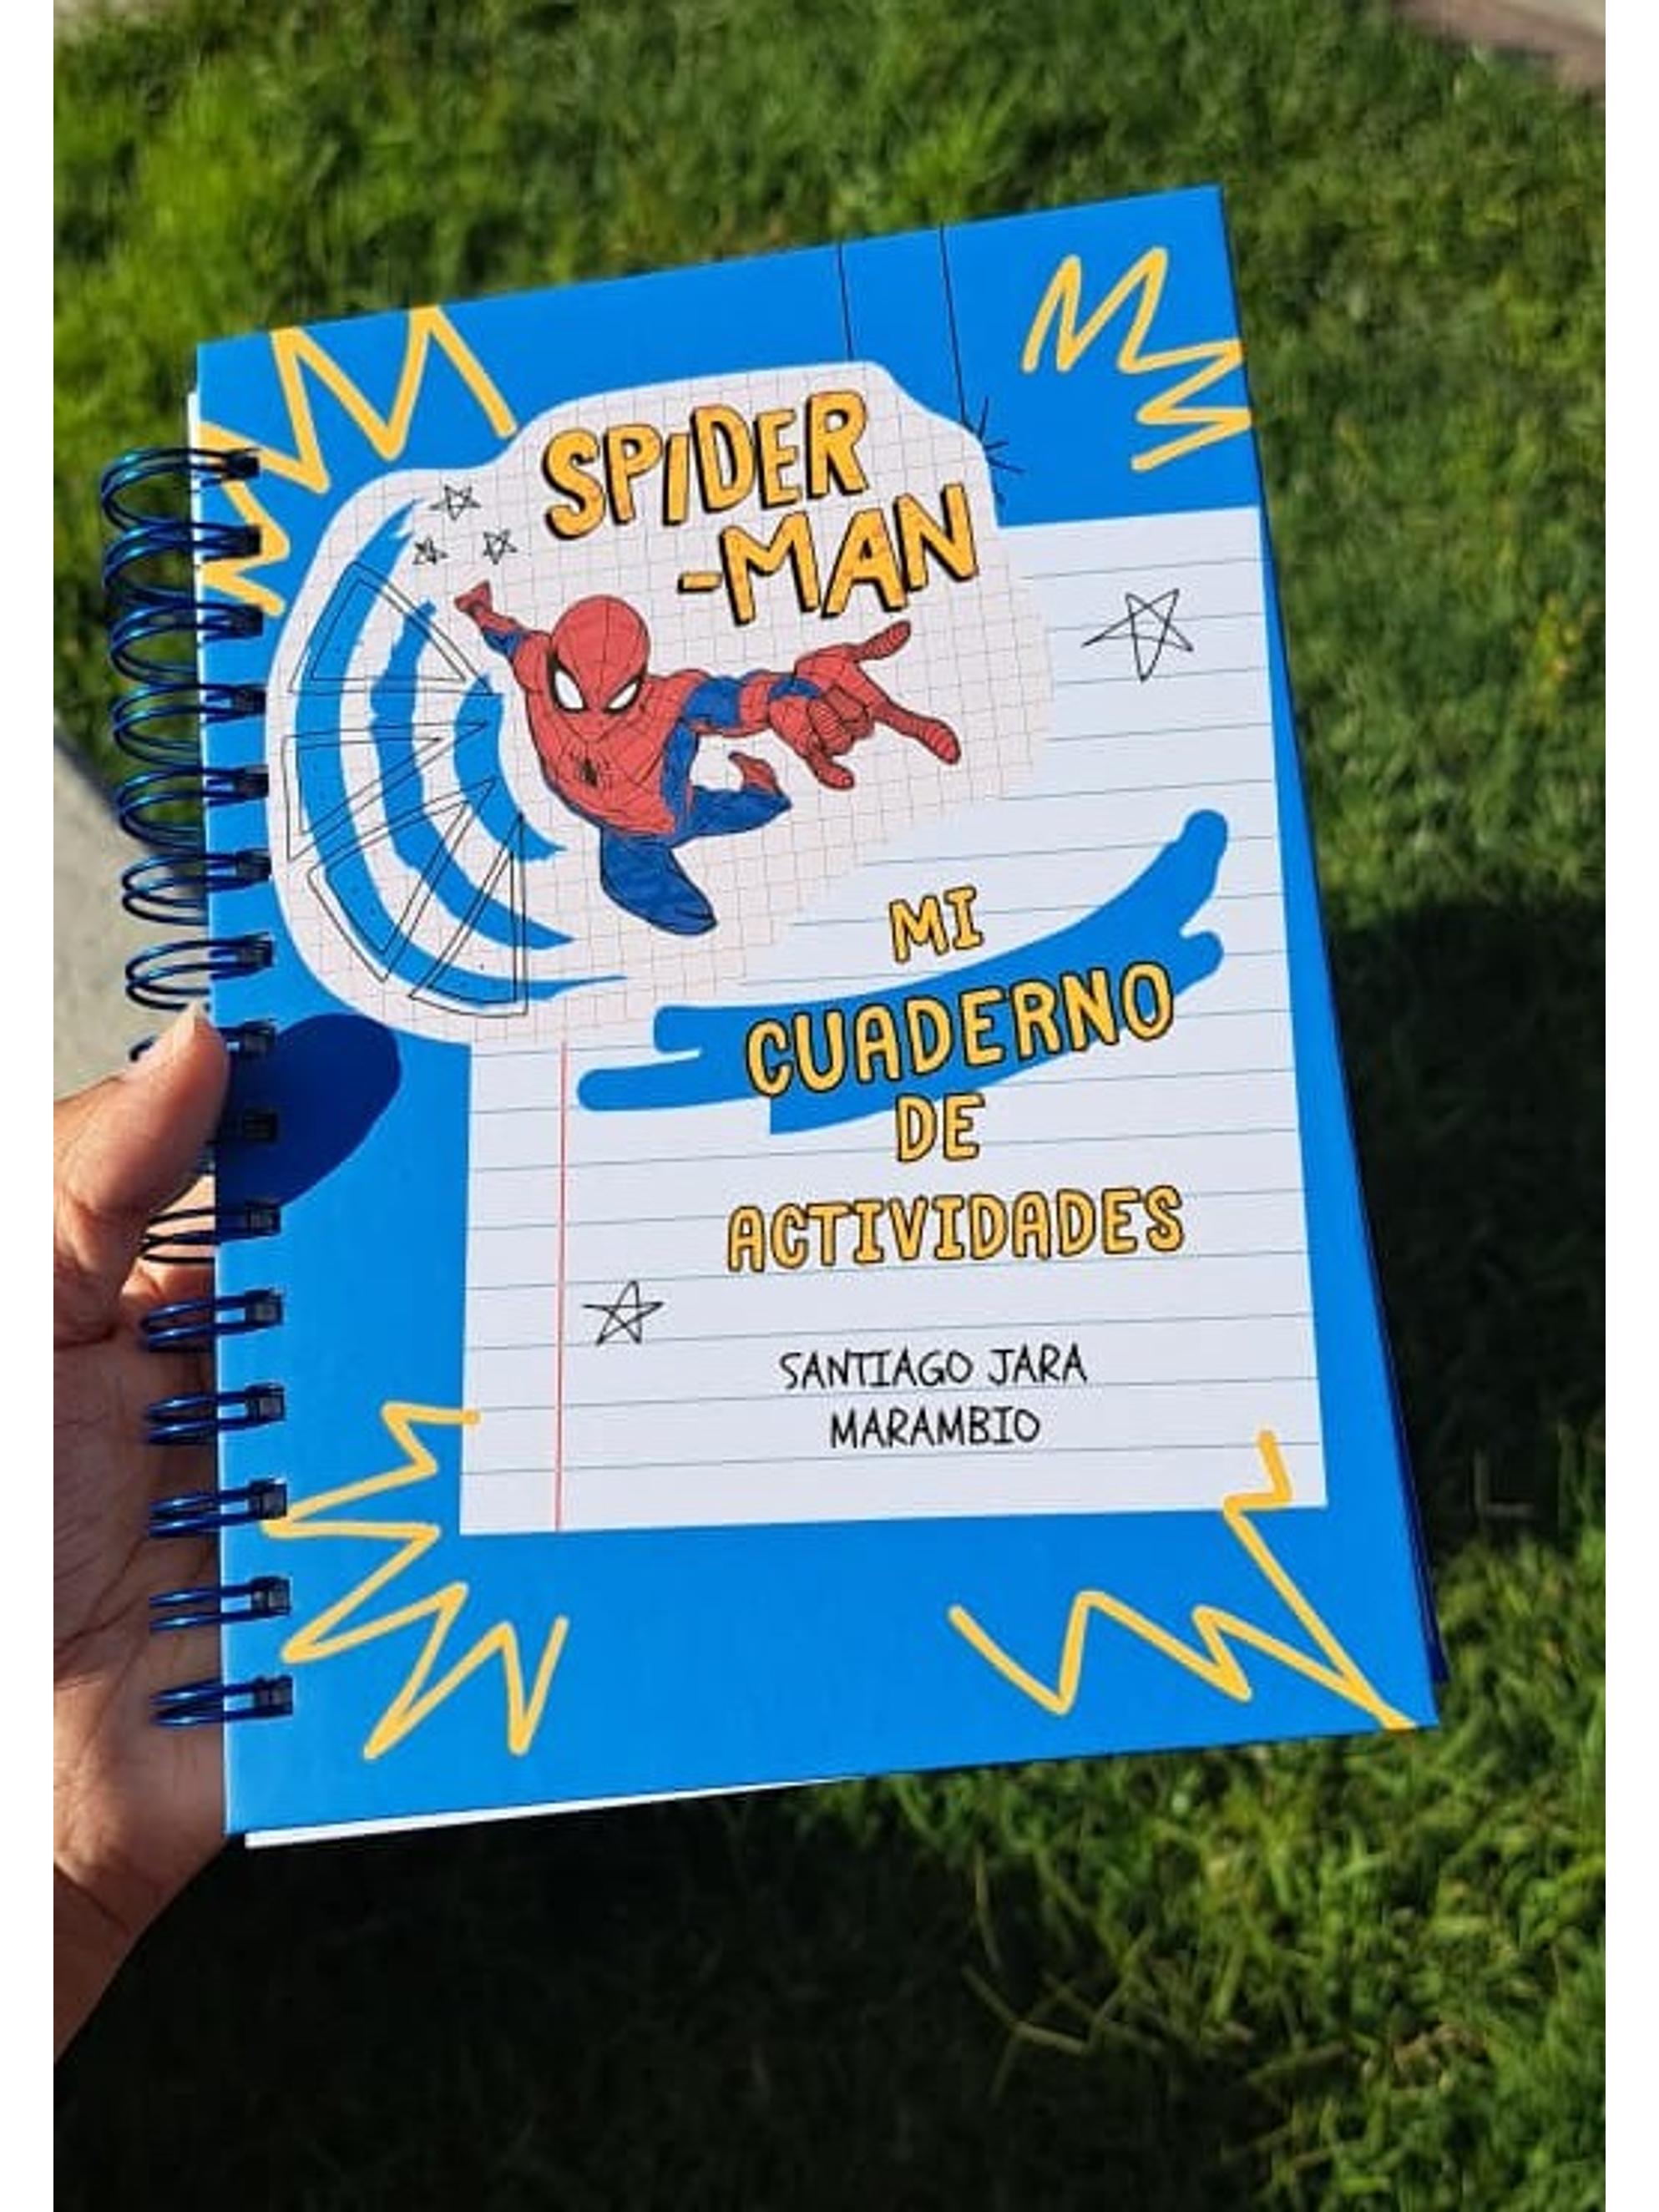 SPIDER
-MAN
MI
CUADERNO
DE
ACTIVIDADES
SANTIAGO JARA
MARAMBIO